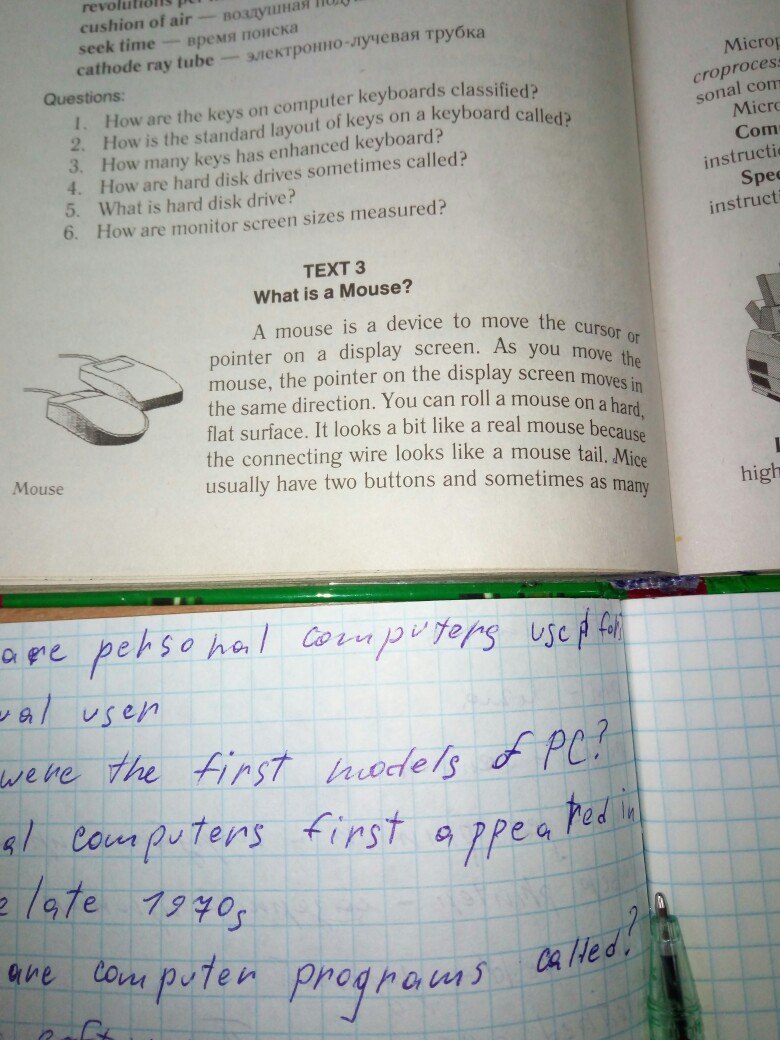 revolutions per
cushion of air — воздушная
seek time — время поиска
cathode ray tube — электронно-лучевая трубка
Questions:
1. How are the keys on computer keyboards classified?
2. How is the standard layout of keys on a keyboard called?
3. How many keys has enhanced keyboard?
4. How are hard disk drives sometimes called?
5. What is hard disk drive?
6. How are monitor screen sizes measured?
TEXT 3
What is a Mouse?
A mouse is a device to move the cursor or
pointer on a display screen. As you move the
mouse, the pointer on the display screen moves in
the same direction. You can roll a mouse on a hard,
flat surface. It looks a bit like a real mouse because
the connecting wire looks like a mouse tail. Mice
usually have two buttons and sometimes as many
Mouse
Microp
croprocess
sonal com
Micro
Com
instructi
Spec
instruct
high
are personal computers used for
ual user
were the first models of PC?
al computers first appeared in
e late 1970s
are computer programs called?